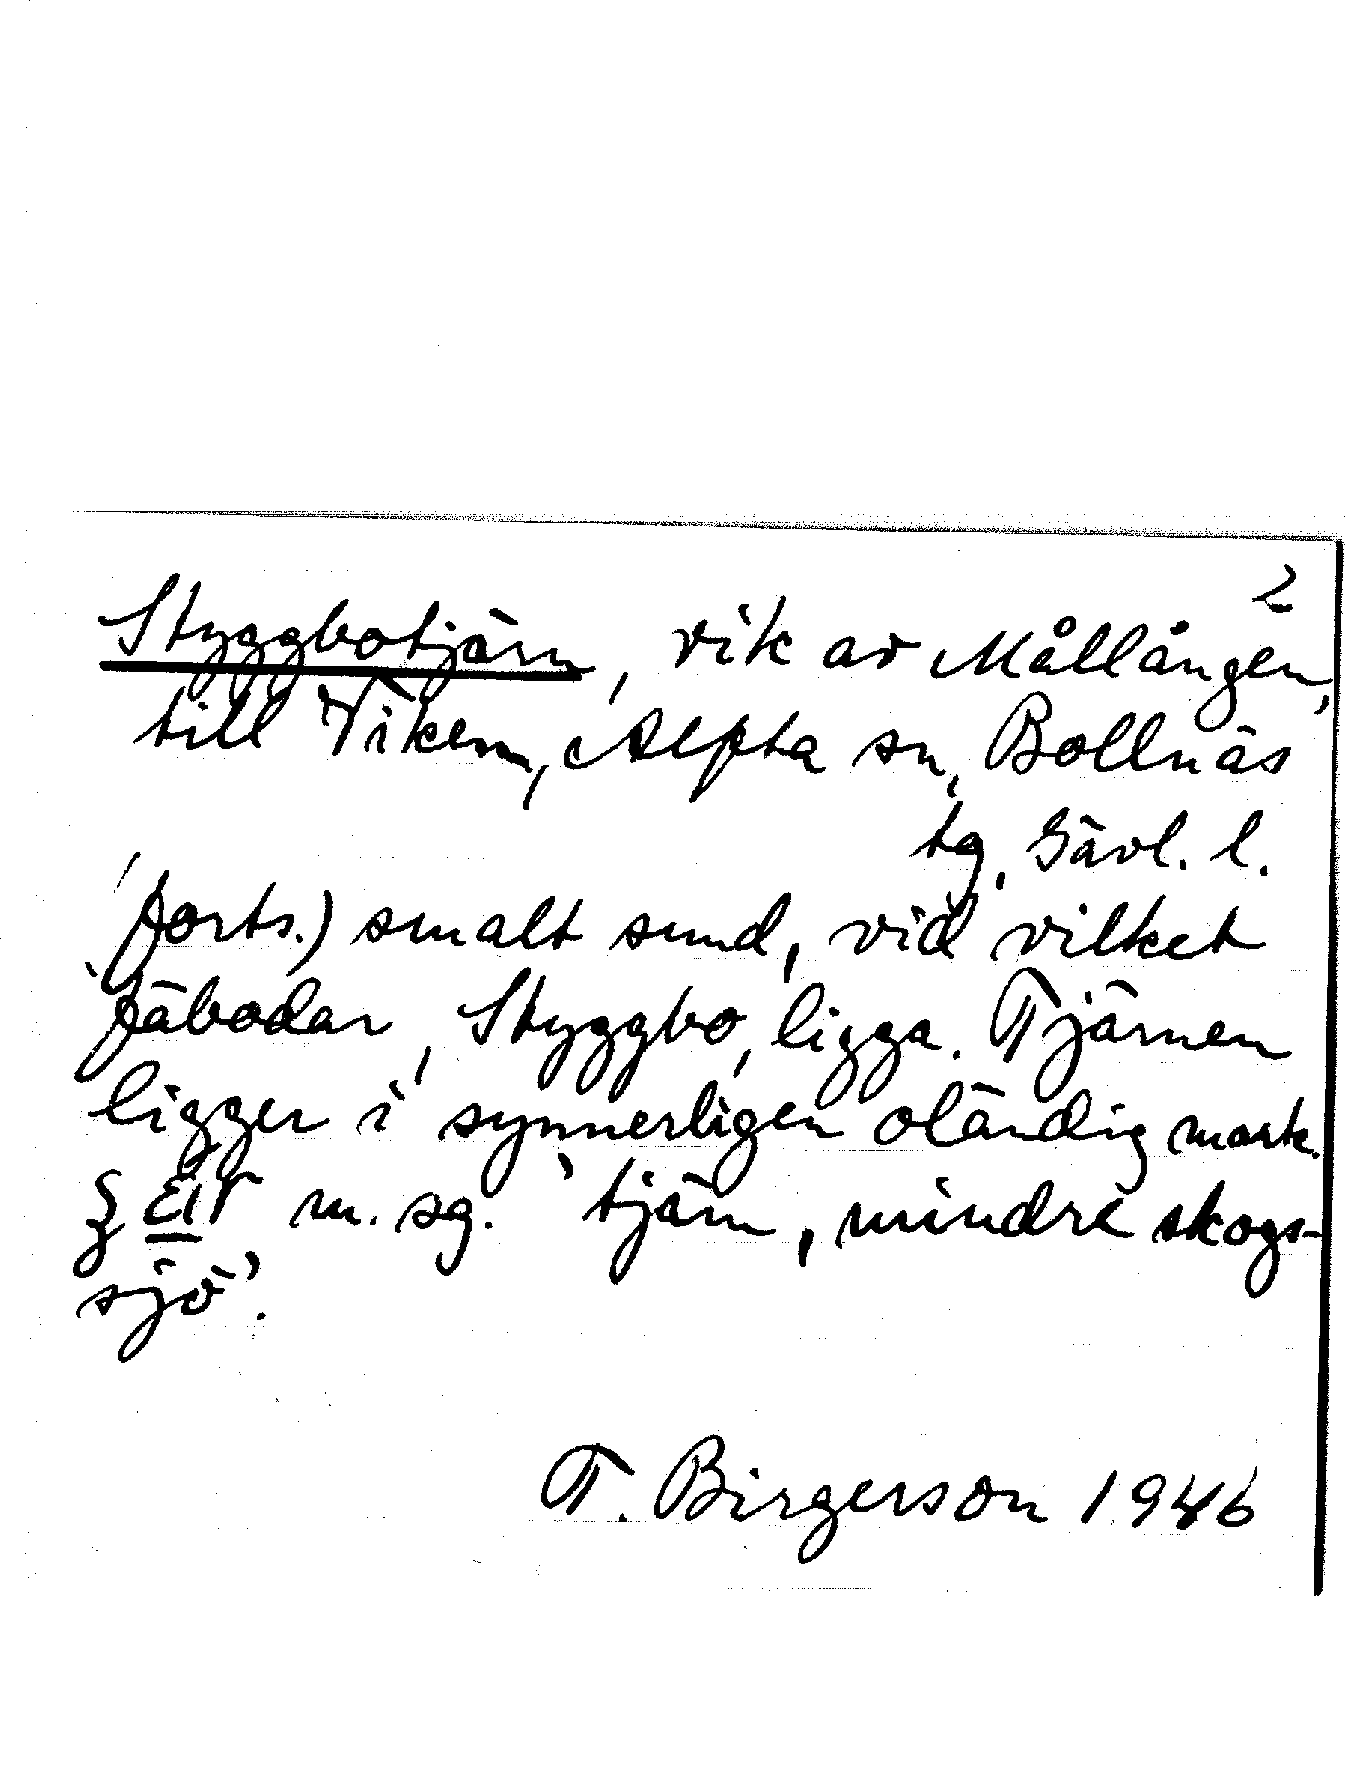 2
Styggbotjärn, vik av Mållången,
till Viken, Alfta sn, Bollnäs
tg, Gävl. l.
(forts.) smalt sund, vid vilket
fäbodar, Styggbo, ligga. Tjärnen
ligger i synnerligen oländig mark.
m. sg. 'tjärn, mindre skogs-
sjö'.
T. Birgerson 1946